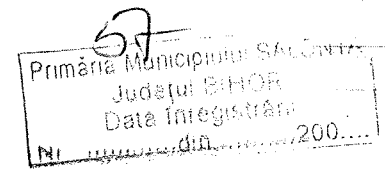 57
Primăria Municipiului SALONTA
Județul BIHOR
Data înregistrării
Nr. ............din............/200....